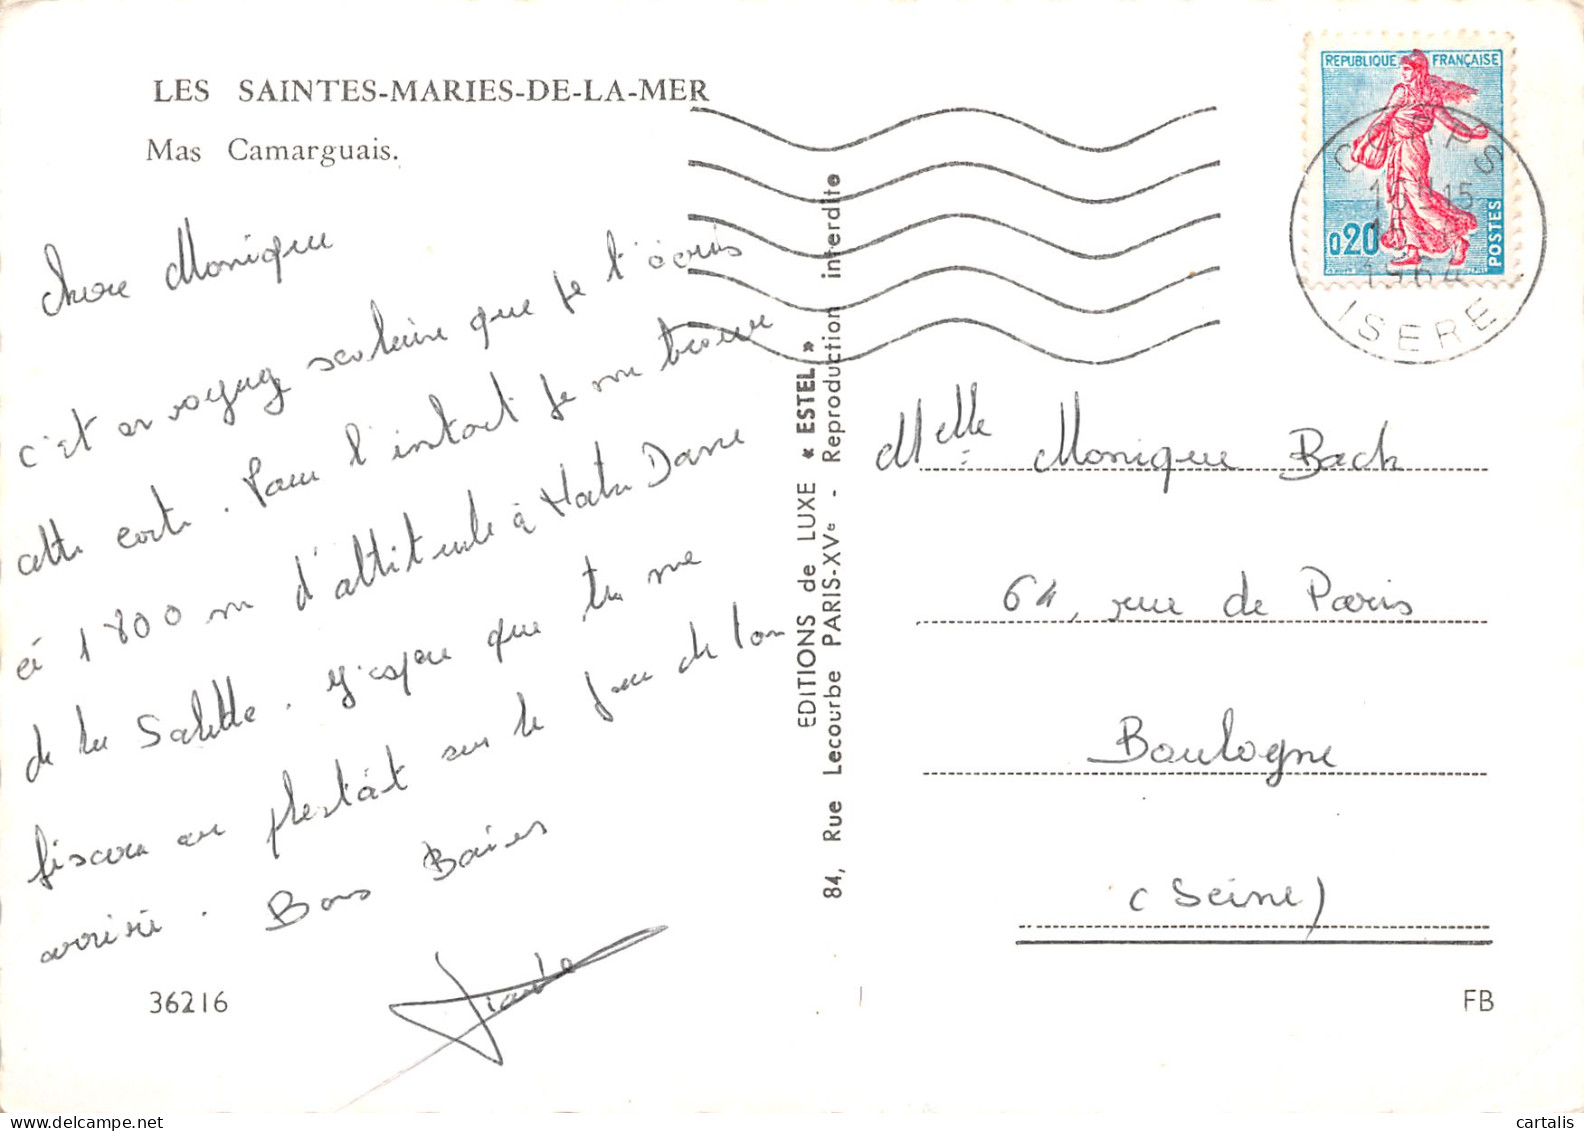 LES SAINTES-MARIES-DE-LA-MER
Mas Camarguais.
Chère Monique
c'est en voyage scolaire que je t'écris
cette carte. Pour l'instant je me trouve
à 1800 m d'altitude à Notre Dame
de la Salette. J'espère que tu me
au sur le de ton
arrivée. Bons Baisers
36216
EDITIONS de LUXE « ESTEL »
84, Rue Lecourbe PARIS-XVe - Reproduction interdite
REPUBLIQUE FRANÇAISE
0,20
POSTES
CORPS
1964
ISERE
Melle Monique Back
64, rue de Paris
Boulogne
(Seine)
FB
cartalis.com